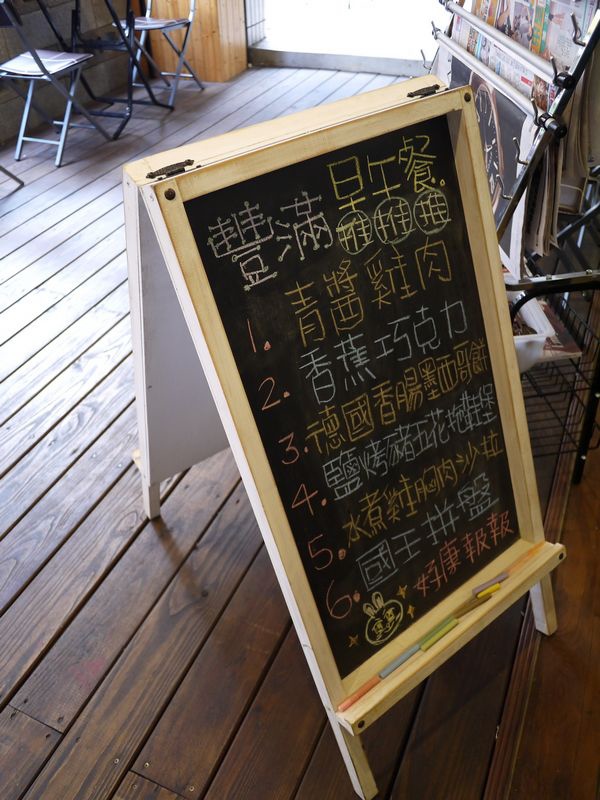 豐滿早午餐
推推推
1. 青醬雞肉
2. 香蕉巧克力
3. 德國香腸墨西哥餅
4. 鹽烤豬五花地鞋堡
5. 水煮雞胸肉沙拉
6. 國王拼盤
好康報報